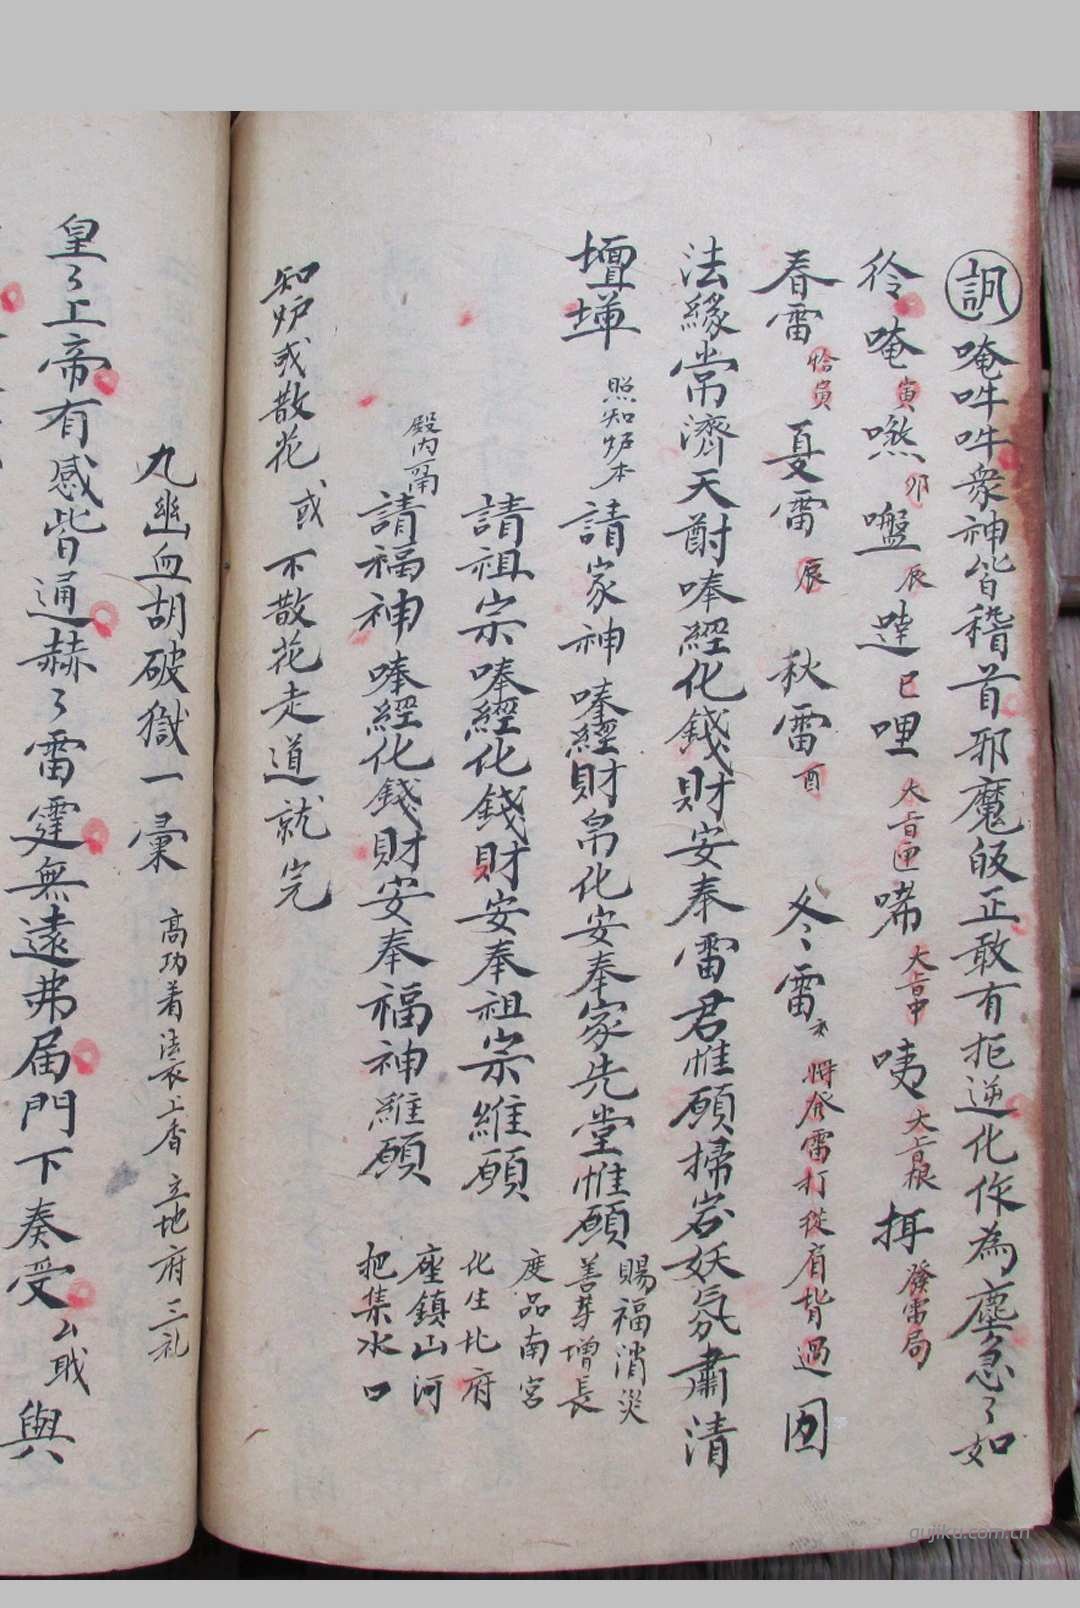 唵吽吽衆神皆稽首邪魔皈正敢有拒逆化作為塵急〻如
唵寅 卯 辰 巳 哩 大旨 唏 大旨中 咦 大旨根 發雷局
春雷 寅 夏雷 辰 秋雷 酉 冬雷 將發雷打從肩背過
法緣常濟天酧唪經化錢財安奉雷君惟願掃宕妖氛肅清
壇墠 照知炉本 請家神唪經財帛化安奉家先堂惟願 賜福消災 善芽增長
請祖宗唪經化錢財安奉祖宗維願 度品南宮 化生北府
殿内 請福神唪經化錢財安奉福神維願 座鎮山河 把集水口
知炉或散花 或不散花走道就完
九幽血胡破獄一彙 高功着法衣上香 立地府三礼
皇〻上帝有感皆通赫〻雷霆無遠弗届門下奏受 與
gujiku.com.cn